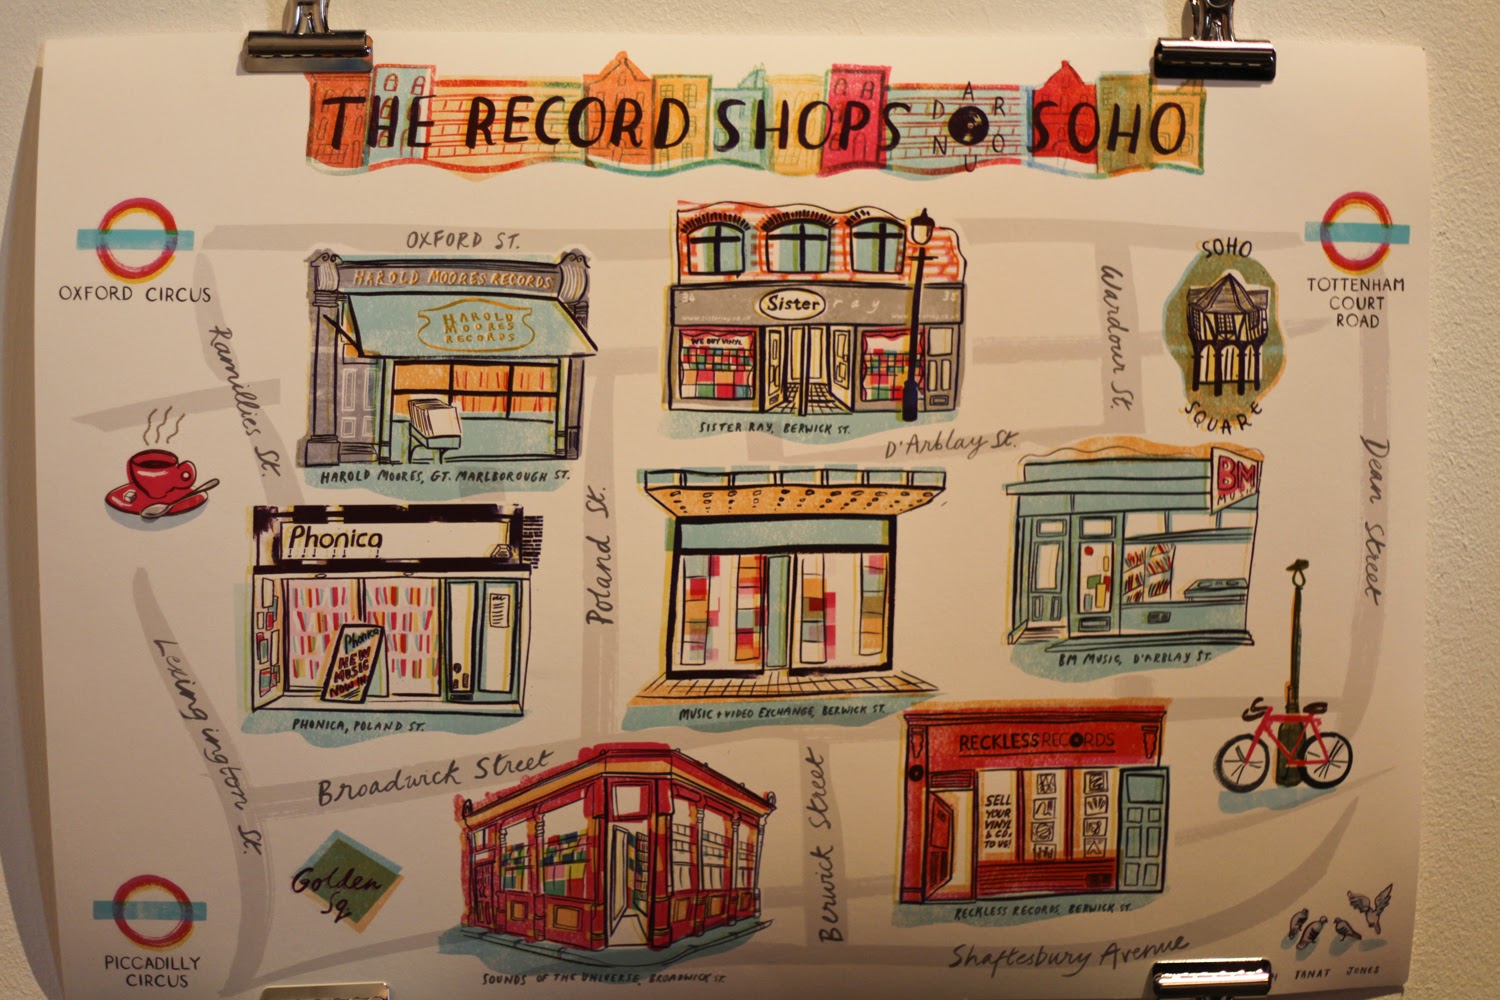 THE RECORD SHOPS AROUND SOHO
OXFORD CIRCUS
OXFORD ST.
HAROLD MOORES RECORDS
HAROLD
MOORES
RECORDS
HAROLD MOORES, GT. MARLBOROUGH ST.
34
Sister ray
35
WE BUY VINYL
SISTER RAY, BERWICK ST.
Wardour St.
SOHO
SQUARE
TOTTENHAM
COURT
ROAD
Ramillies St.
D'Arblay St.
Dean Street
Phonica
Phonica
NEW
MUSIC
NOW IN
PHONICA, POLAND ST.
Poland St.
MUSIC + VIDEO EXCHANGE, BERWICK ST.
BM
MUSIC
BM MUSIC, D'ARBLAY ST.
Lexington St.
Broadwick Street
Golden
Sq
SOUNDS OF THE UNIVERSE, BROADWICK ST.
Berwick Street
RECKLESS RECORDS
SELL
YOUR
VINYL
& CDs
TO US!
RECKLESS RECORDS, BERWICK ST.
PICCADILLY
CIRCUS
Shaftesbury Avenue
TANAT JONES